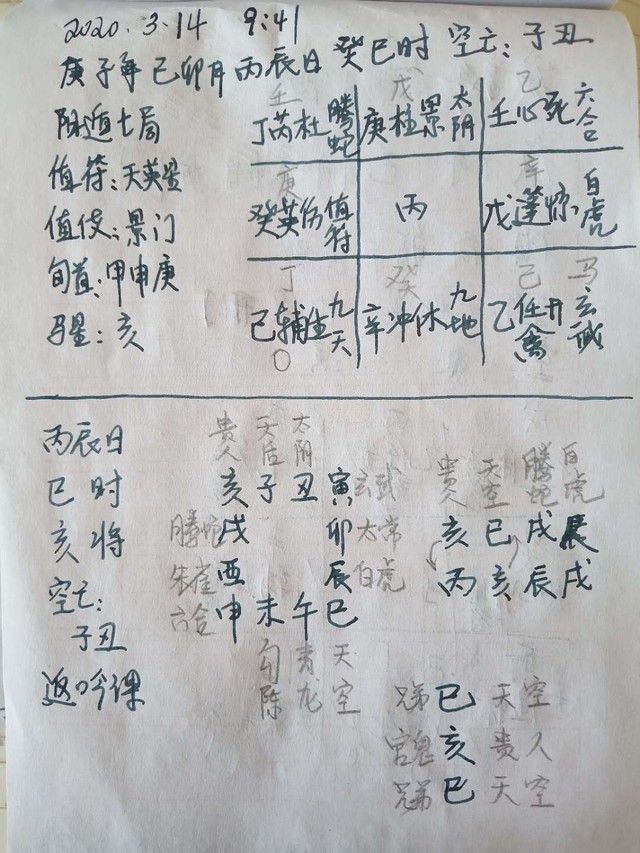 2020.3.14 9:41
庚子年 己卯月 丙辰日 癸巳时 空亡:子丑
阴遁七局
值符:天英星
值使:景门
旬首:甲申庚
马星:亥
壬
丁芮杜 腾蛇
戊
庚柱景 太阴
乙
壬心死 六合
庚
癸英伤 值符
丙
辛
戊蓬惊 白虎
丁
己辅生 九天
〇
癸
辛冲休 九地
己 马
乙任开 玄武
禽
丙辰日
巳时
亥将
空亡:
子丑
返吟课
贵人 天后 太阴
亥 子 丑 寅 玄武
腾蛇 戌 卯 太常
朱雀 酉 辰 白虎
六合 申 未 午 巳
勾陈 青龙 天空
贵人 天空 腾蛇 白虎
亥 巳 戌 辰
丙 亥 辰 戌
兄弟 巳 天空
官鬼 亥 贵人
兄弟 巳 天空